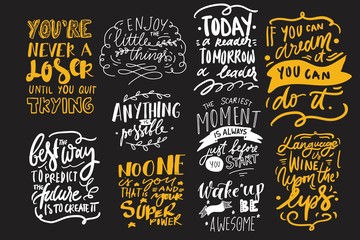 YOU'RE
NEVER A
LOSER
UNTIL YOU QUIT
TRYING
ENJOY
the
little
things
TODAY
a reader
TOMORROW
a leader
IF YOU CAN
dream it
YOU CAN
do it.
ANYTHING
is
possible
THE SCARIEST
MOMENT
IS ALWAYS
just before
YOU START
best the
WAY
TO PREDICT
the
future
IS TO CREATE IT
NO ONE
is you
THAT IS AND
YOUR
SUPER
POWER
wake up
BE
AWESOME
Language
is
WINE
upon the
lips